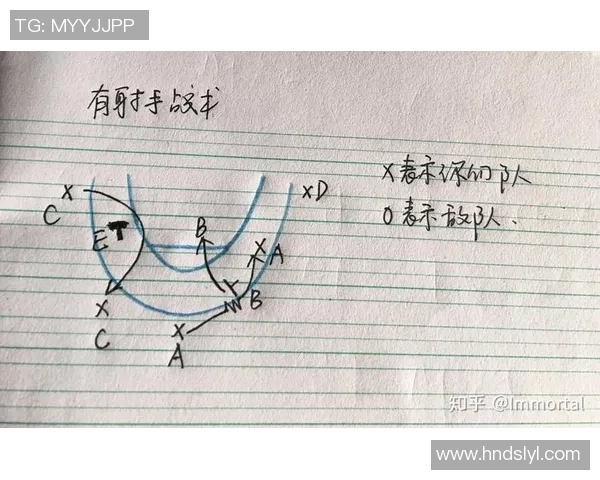 TG: MYYJJPP
有射手战术
X表示你们队
O表示敌队.
X
C
E
B
X
A
XD
B
X
C
X
A
知乎 @Immortal
www.hndslyl.com